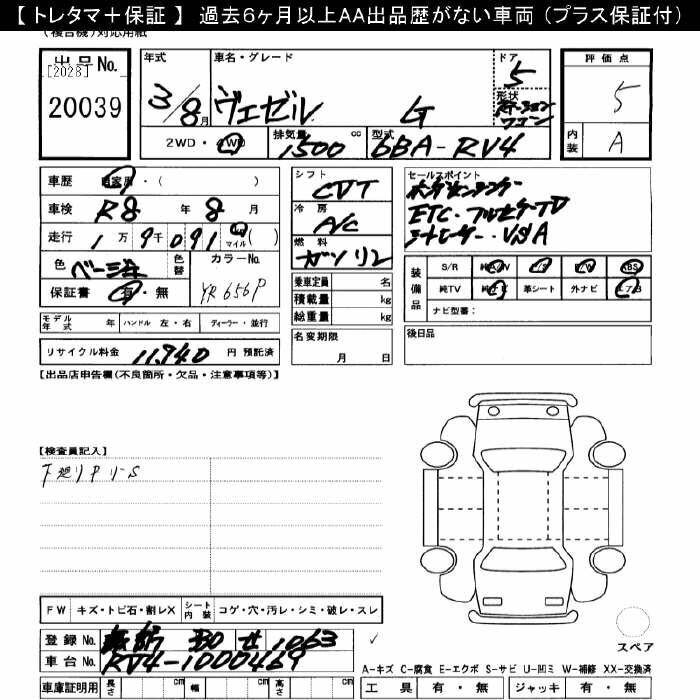 【 トレタマ＋保証 】 過去6ヶ月以上AA出品歴がない車両 （プラス保証付）
（複合機）対応用紙
出品No. 年式 車名・グレード ドア 評価点
[2028]
20039 3/8月 ヴェゼル G 5 5
形状
ステーション
ワゴン
2WD・4WD 排気量 1500 cc 型式 6BA-RV4 内装 A
車歴 自家用・（ ） シフト CVT セールスポイント
車検 R8 年 8 月 冷房 A/C ホンダセンシング
走行 1万 9千 091 マイル( ) 燃料 ガソリン ETC・フルセグTV
シートヒーター・VSA
色 ベージュ 色替 カラーNo. YR656P
保証書 有・無
乗車定員 名
積載量 kg
総重量 kg
装備品 S/R 純A/W P/S P/W ABS
純TV 純ナビ 革シート 外ナビ エアB
ナビ型番：
モデル年式 年 ハンドル 左・右 ディーラー・並行 名変期限 月 日 後日品
リサイクル料金 11,940 円 預託済
【出品店申告欄(不良箇所・欠品・注意事項等)】
【検査員記入】
下廻りP リーS
FW キズ・トビ石・割レX シート内装 コゲ・穴・汚レ・シミ・破レ・スレ
登録 No. 330 せ 1063
車台 No. RV4-1000469
スペア
A-キズ C-腐食 E-エクボ S-サビ U-凹ミ W-補修 XX-交換済
車庫証明用 長さ cm 幅 cm 高さ cm 工具 有・無 ジャッキ 有・無